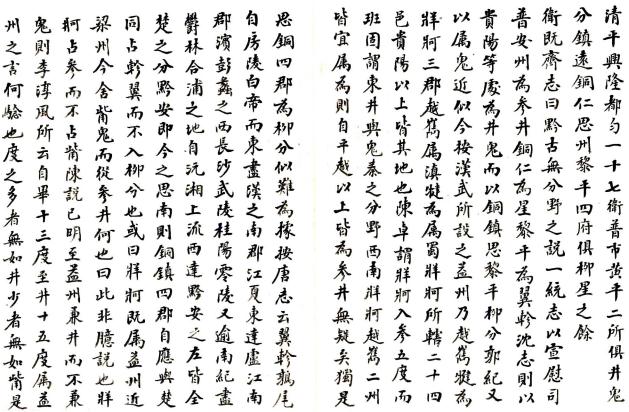 清平興隆都勻一十七衛普市黃平二所俱井鬼
分鎮遠銅仁思州黎平四府俱柳星之餘
衛既齋志曰黔古無分野之說一統志以宣慰司
普安州為參井銅仁為星黎平為翼軫沈志則以
貴陽等處為井鬼而以銅鎮思黎平柳分郭紀又
以屬鬼近似今按漢武所設之益州乃越嶲犍為
牂牁三郡越嶲屬滇犍為屬蜀牂牁所轄二十四
邑貴陽以上皆其地也陳卓謂牂牁入參五度而
班固謂東井輿鬼秦之分野西南牂牁越嶲二州
皆宜屬為則自平越以上皆為參井無疑矣獨是
思銅四郡為柳分似難為據按唐志云翼軫鶉尾
自房陵白帝而東盡漢之南郡江夏東達廬江南
郡濱彭蠡之西長沙武陵桂陽零陵又逾南紀盡
欝林合浦之地自沅湘上流西達黔安之左皆全
楚之分黔安即今之思南則銅鎮四郡自應與楚
同占軫翼而不入柳分也或曰牂牁既屬益州近
梁州今舍觜鬼而從參井何也曰此非臆說也牂
牁占參而不占觜陳說已明至益州兼井而不兼
鬼則李淳風所云自畢十三度至井十五度屬益
州之言何驗也度之多者無如井少者無如觜是